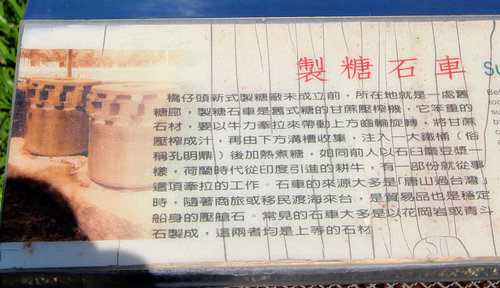 製糖石車
Su
橋仔頭新式製糖廠未成立前，所在地就是一處舊
糖廍，製糖石車是舊式糖的甘蔗壓榨機，它笨重的
石材，要以牛力牽拉來帶動上方齒輪旋轉，將甘蔗
壓榨成汁，再由下方溝槽收集，注入一大鐵桶（俗
稱孔明鼎）後加熱煮糖，如同前人以石臼磨豆漿一
樣，荷蘭時代從印度引進的耕牛，有一部份就從事
這項牽拉的工作。石車的來源大多是「唐山過台灣」
時，隨著商旅或移民渡海來台，是貿易品也是穩定
船身的壓艙石。常見的石車大多是以花岡岩或青斗
石製成，這兩者均是上等的石材